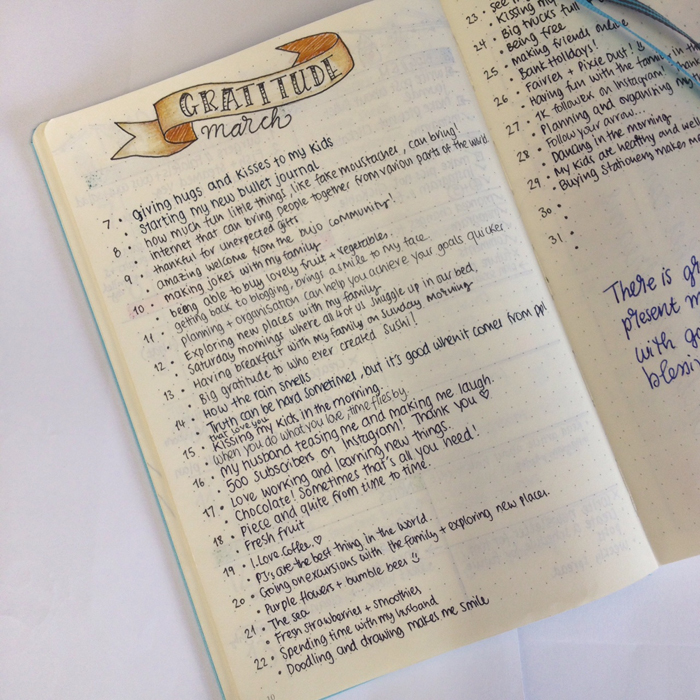 GRATITUDE
March
7. • giving hugs and kisses to my kids
• starting my new bullet journal
8. • how much fun little things, like fake moustaches, can bring!
• internet that can bring people together from various parts of the word
9. • thankful for unexpected gifts
• amazing welcome from the bujo community!
10. • making jokes with my family
• being able to buy lovely fruit + vegetables.
11. • getting back to blogging, brings a smile to my face
• planning + organisation can help you achieve your goals quicker
12. • Exploring new places with my family
• Saturday mornings where all 4 of us snuggle up in our bed.
13. • Having breakfast with my family on sunday morning
• Big gratitude to who ever created Sushi!
14. • How the rain smells
• Truth can be hard sometimes, but it's good when it comes from ppl
that love you
15. • Kissing my kids in the morning.
• When you do what you love, time flies by.
16. • My husband teasing me and making me laugh.
• 500 subscribers on Instagram! Thank you ♡
17. • Love working and learning new things.
• Chocolate! Sometimes that's all you need!
18. • Piece and quite from time to time.
• Fresh fruit
19. • I Love Coffee. ♡
• PJ's are the best thing in the world.
20. • Going on excursions with the family + exploring new places.
• Purple flowers + bumble bees
21. • The sea
• Fresh strawberries + smoothies
22. • Spending time with my husband
• Doodling and drawing makes me smile
23. • see
• Kissing my
24. • Big trucks full
• Being free
25. • making friends online
• Bank Holidays!
26. • Fairies + Pixie Dust!
• Having fun with the family in th
27. • 1K followers on Instagram!
• Planning and organising my
28. • Follow your arrow...
• Dancing in the morning
29. • My kids are healthy and well
• Buying stationery makes me
30. •
•
31. •
•
There is gr
present
with g
blessi